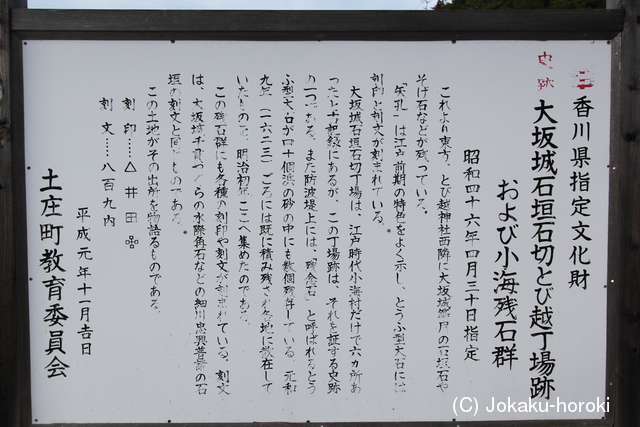 香川県指定文化財
史跡 大坂城石垣石切とび越丁場跡
および小海残石群
昭和四十六年四月三十日指定
これより東方、とび越神社西隣に大坂城築用の石垣石や
そげ石などが残っている。
「矢孔」は江戸前期の特色をよく示し、とうふ型大石には
刻印と刻文が刻まれている。
大坂城石垣石切丁場は、江戸時代小海村だけで六カ所あ
ったと古記録にあるが、この丁場跡は、それを証する史跡
の一つである。また防波堤上には、「残念石」と呼ばれるとう
ふ型大石が四十個浜の砂の中にも数個残存している。元和
九年(一六二三)ごろには既に積み残され各地に散在して
いたものを、明治初年ここへ集めたのである。
この残石群にも各種の刻印や刻文が刻まれている。刻文
は、大坂城千貫やぐらの水際角石などの細川忠興普請の石
垣の刻文と同じものである。
この土地がその出所を物語るものである。
刻印……△ 井 田
刻文……八百九内
平成元年十一月吉日
土庄町教育委員会
(C) Jokaku-horoki